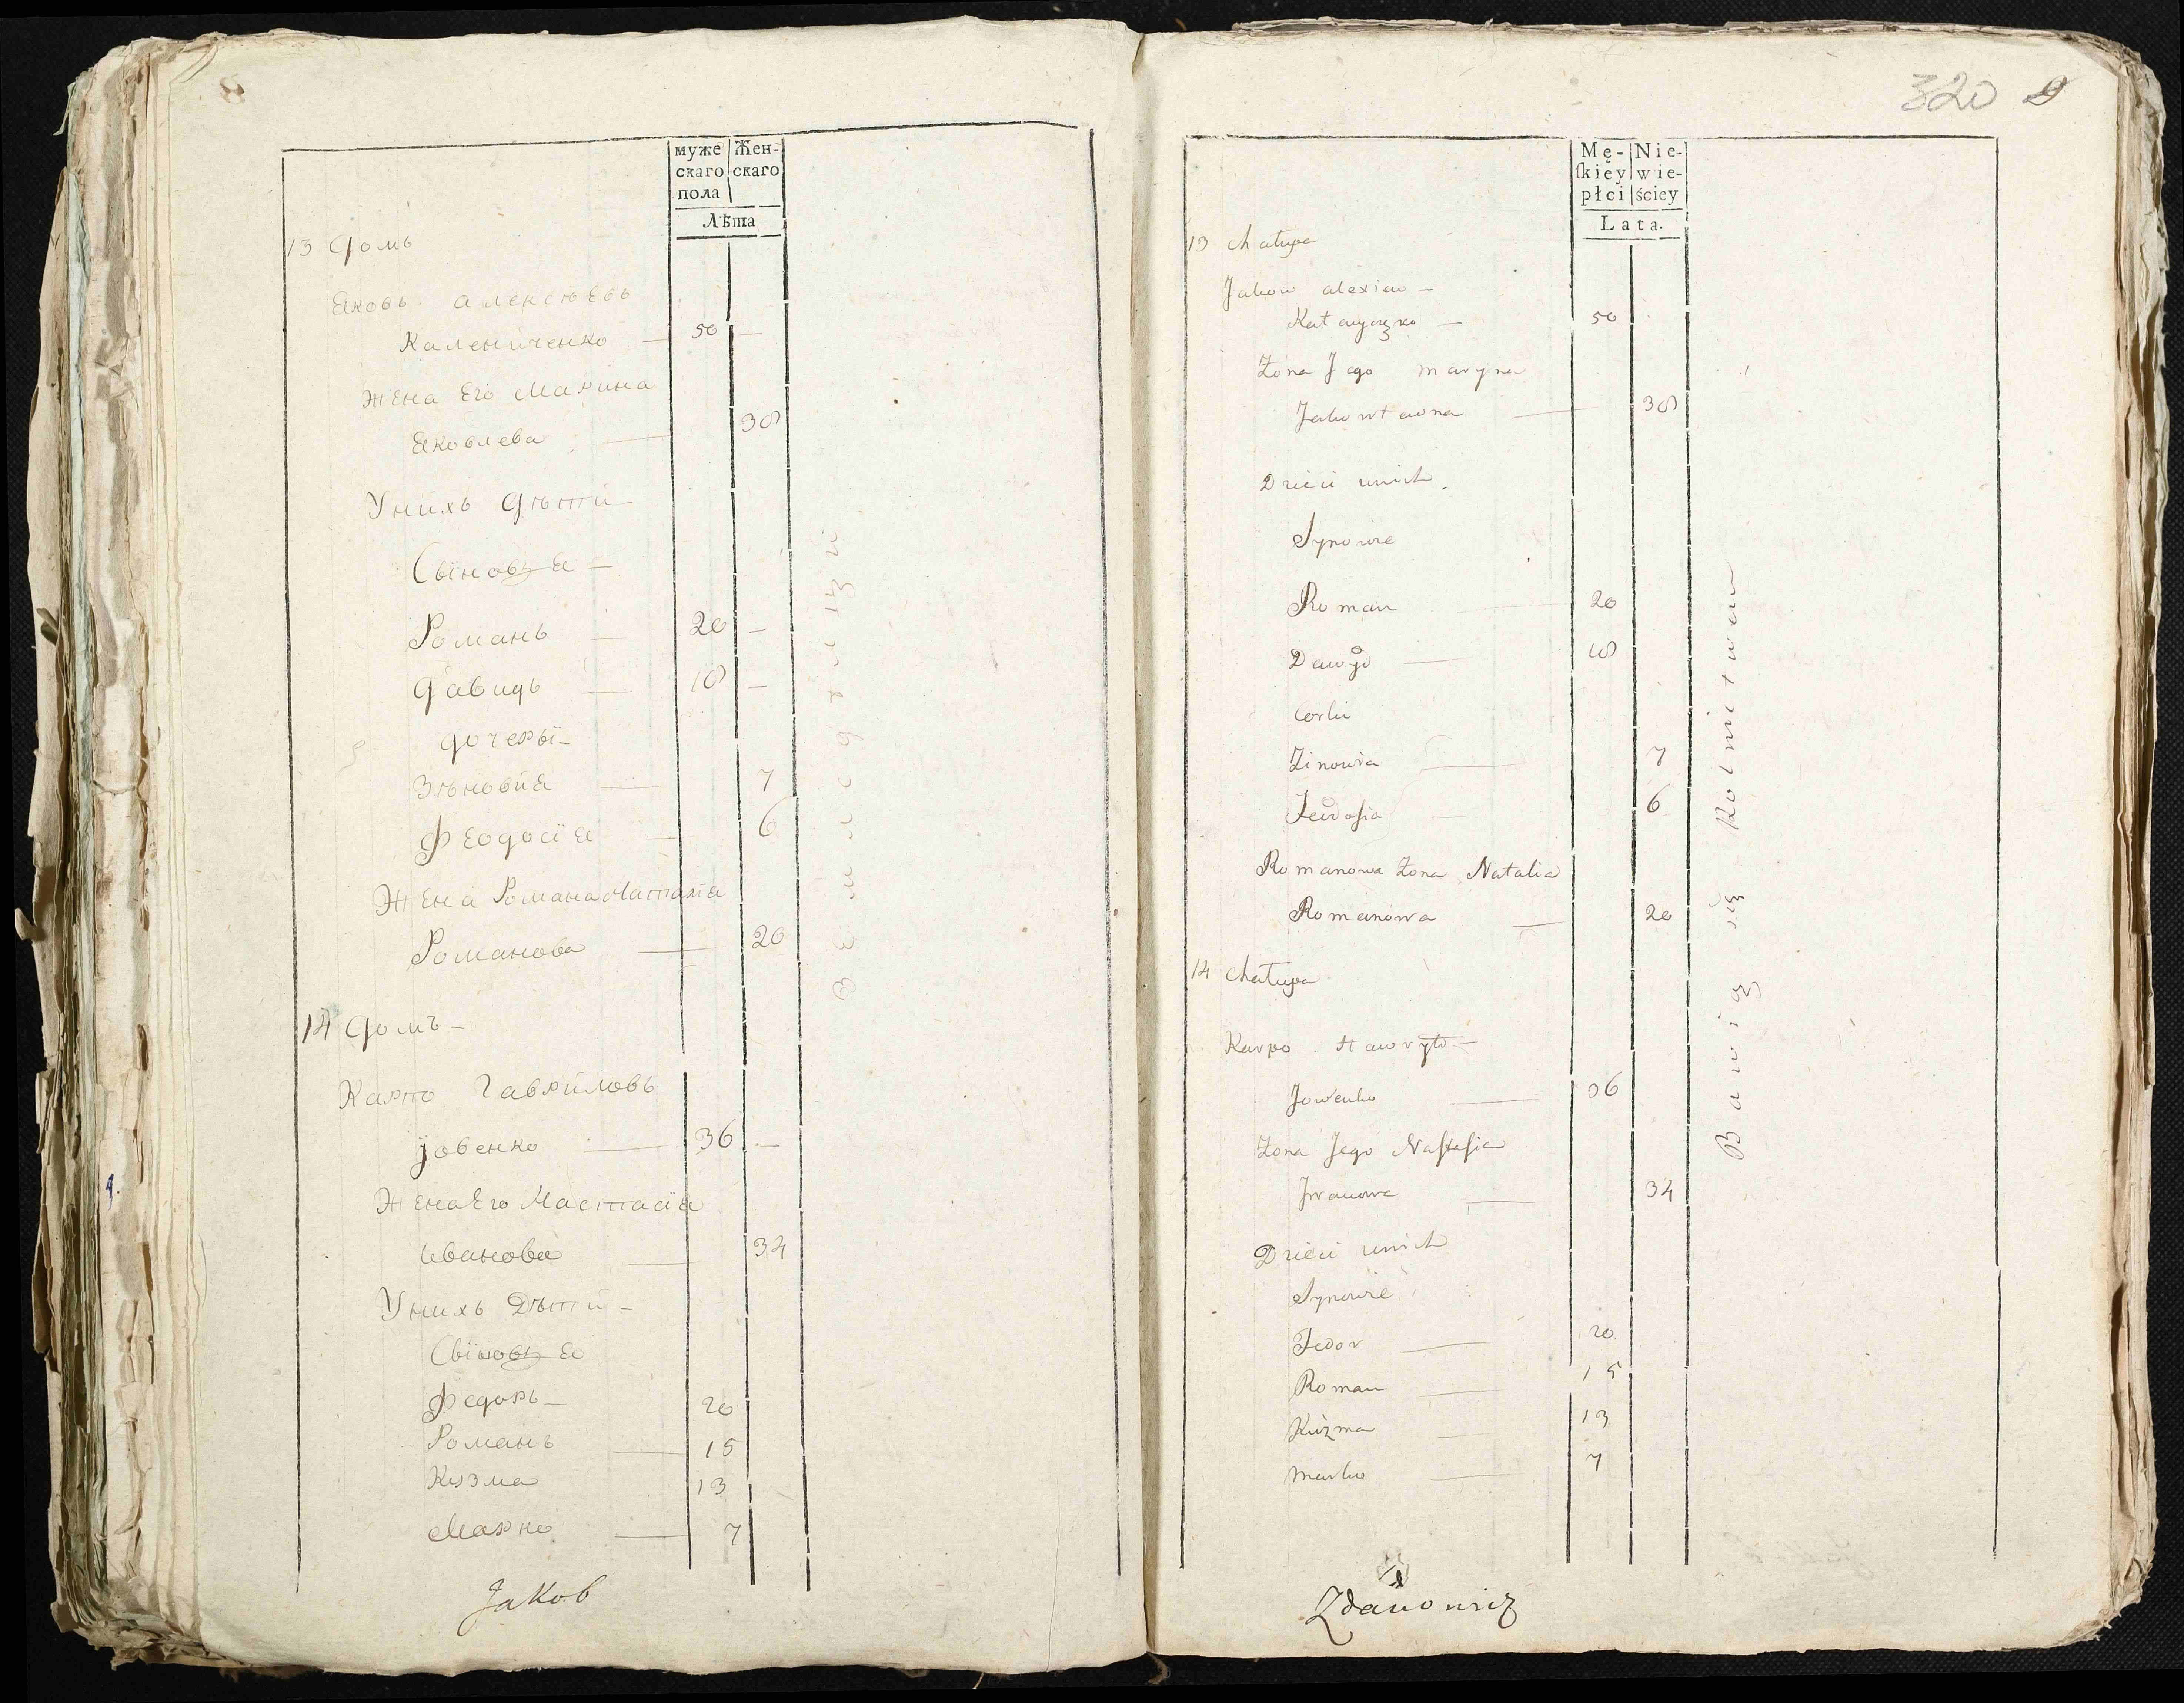 8
муже Жен-
скаго скаго
пола
Лѣта
13 Домъ
Яковъ Алексѣевъ
Калениченко — 50 —
Жена Его Марина
Яковлева — 38
У нихъ Дѣти —
Сыновья —
Романъ — 20 —
Давидъ — 18 —
дочеры —
Зѣновия — 7
Феодосїя — 6
Жена Романа Наталїя
Романова — 20
14 Домъ —
Карпо Гаврйловъ
Јовенко — 36 —
Жена Его Настасїя
Иванова — 34
У нихъ Дѣти —
Сыновья
Федоръ — 20
Романъ — 15
Кузма 13
Марко — 7
Jakob
320 9
Mę- Nie-
ſkiey wie-
płci ściey
Lata.
13 chatupa
Jakow alexiew —
50
Zona Jego maryna
38
Dzieci unich
Synowie
Roman 20
Dawyd — 18
Corki
Zinowia — 7
Feodosia 6
Romanowa Zona Natalia
Romanowa — 20
14 chatupa
Karpo Hawryło —
Jowenko — 36
Zona Jego Nastasia
Jwanowa — 34
Dzieci unich
Synowie
Fedor — 20
Roman — 15
Kuzma — 13
Marko — 7
Zdanowicz